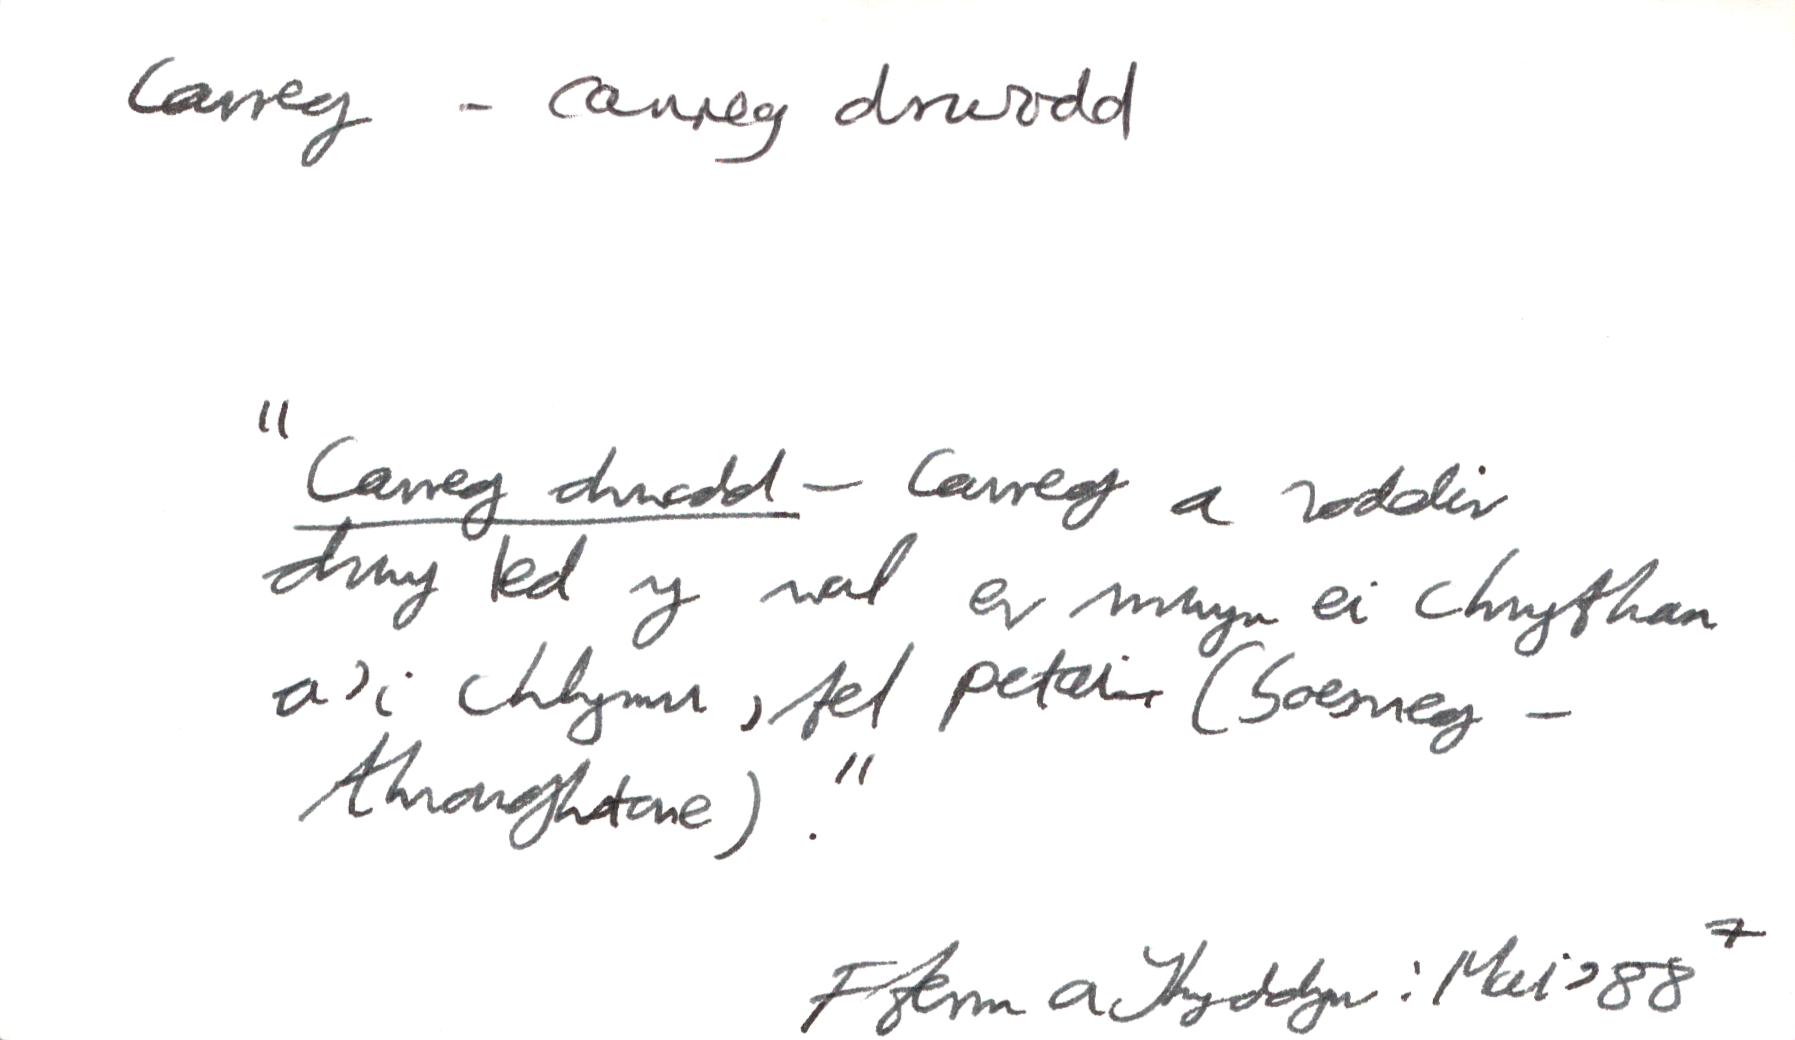 Carreg - carreg drwodd
"Carreg drwodd – Carreg a roddir
drwy led y wal er mwyn ei chryfhau
a'i chlymu, fel petai (Saesneg –
throughstone)."
Ffarm a Thyddyn : Mai '88 7